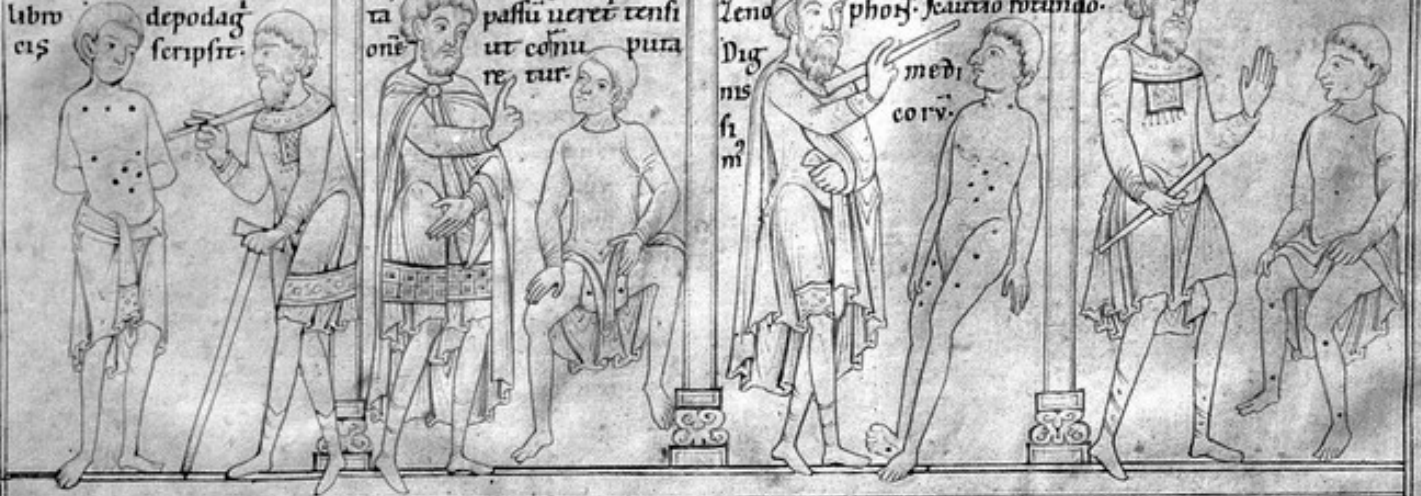 libro depodag̃
cis scripsit·
ta passũ ueret tensi
onẽ ut cornu puta
re tur·
Zeno phon· scautio rotundo·
Dig medi
nis corv̄·
si
m̃